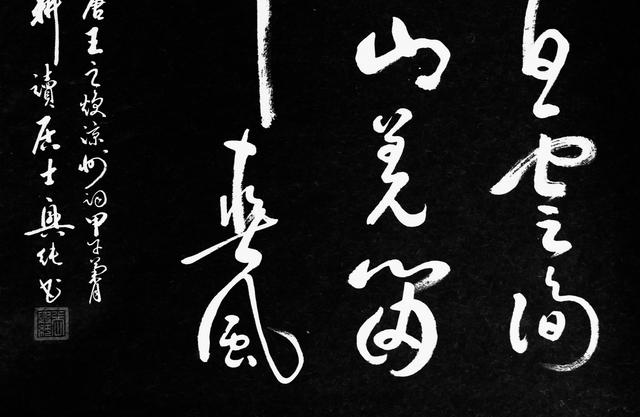 白雲間
山羌笛
春風
唐王之煥涼州詞甲午
耕讀居士興純書